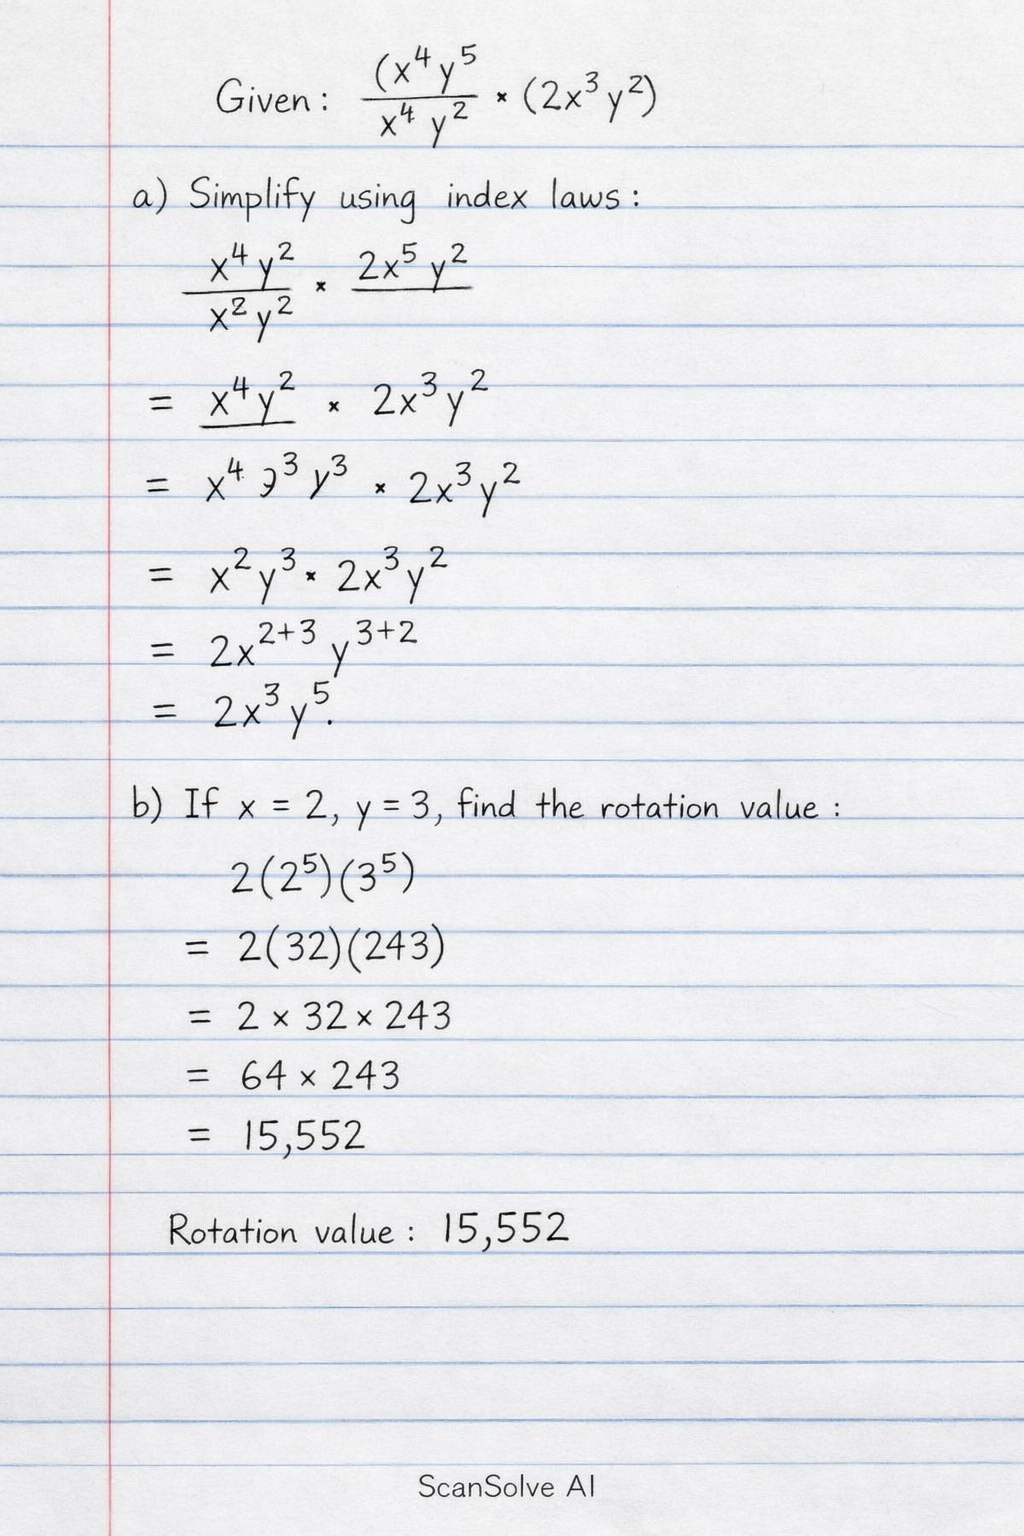 Given: (x⁴y⁵ / x⁴ y² × (2x³y²)
a) Simplify using index laws:
x⁴y² / x²y² × 2x⁵y²
= x⁴y² × 2x³y²
= x⁴ ϶³ y³ × 2x³y²
= x²y³ × 2x³y²
= 2x²⁺³ y³⁺²
= 2x³y⁵.
b) If x = 2, y = 3, find the rotation value :
2(2⁵)(3⁵)
= 2(32)(243)
= 2 × 32 × 243
= 64 × 243
= 15,552
Rotation value : 15,552
ScanSolve AI